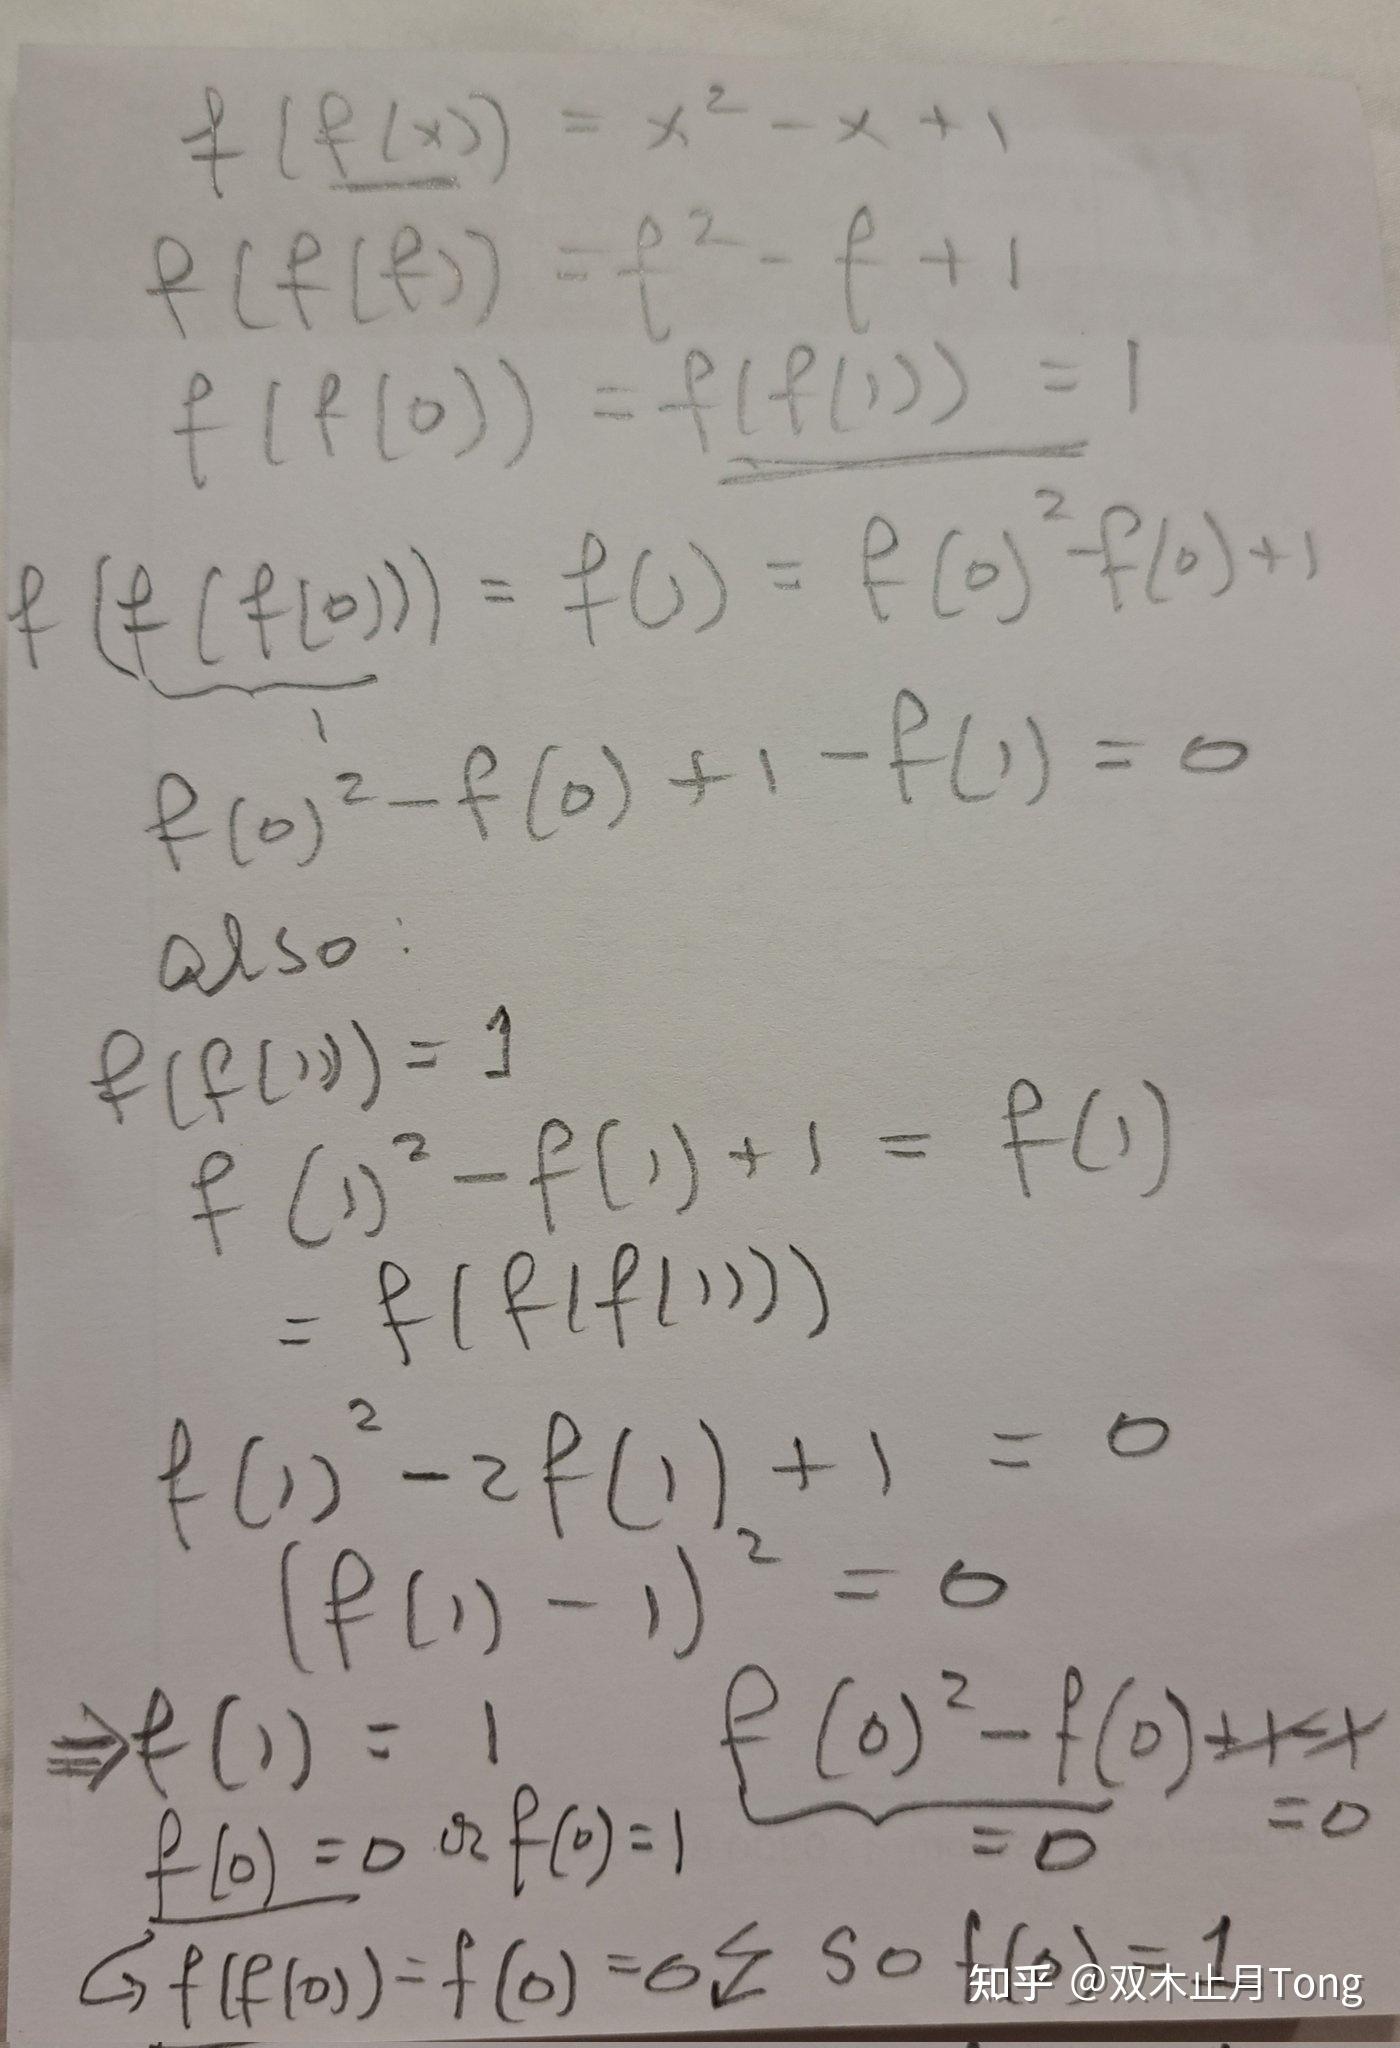 f(f(x)) = x² - x + 1
f(f(f)) = f² - f + 1
f(f(0)) = f(f(1)) = 1
f(f(f(0))) = f(1) = f(0)² - f(0) + 1
1
f(0)² - f(0) + 1 - f(1) = 0
also:
f(f(1)) = 1
f(1)² - f(1) + 1 = f(1)
= f(f(f(1)))
f(1)² - 2f(1) + 1 = 0
(f(1) - 1)² = 0
⇒ f(1) = 1 f(0)² - f(0) + 1 - 1 = 0
f(0) = 0 or f(0) = 1 = 0
↪ f(f(0)) = f(0) = 0 ↯ so f(0) = 1
知乎 @双木止月Tong